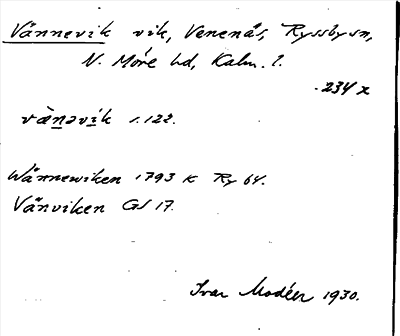 Vännevik vik, Venenäs, Ryssby sn,
N. Möre hd, Kalm. l.
234 x
vænəvik 1.122.
Wännewiken 1793 K Ry 64.
Vänviken GS 17.
Ivar Modéer 1930.